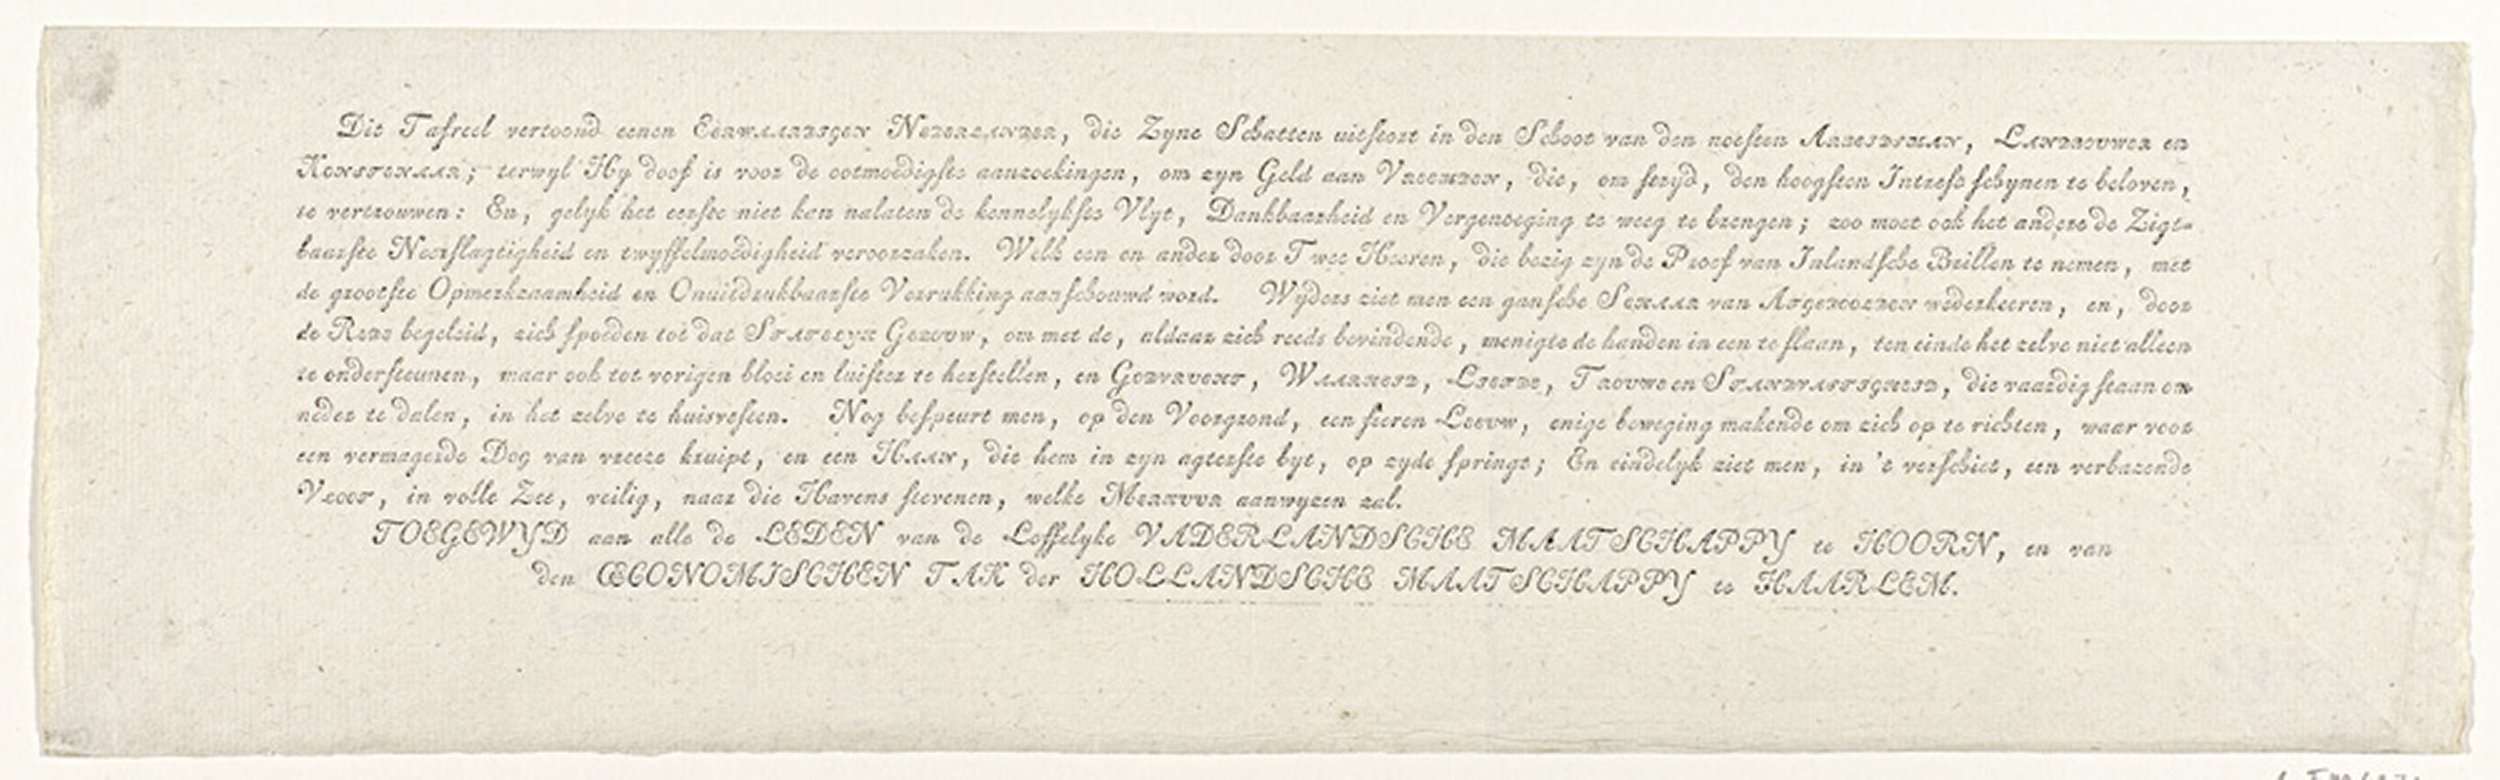 Dit Tafreel vertoond eenen EERWAARDIGEN NEDERLANDER, die Zyne Schatten uitstort in den Schoot van den noesten ARBEIDSMAN, LANDBOUWER en
KONSTENAAR; terwyl Hy doof is voor de ootmoedigste aanzoekingen, om zyn Geld aan VREEMDEN, die, om stryd, den hoogsten Intrest schynen te beloven,
te vertrouwen: En, gelyk het eerste niet kan nalaten de kennelykste Vlyt, Dankbaarheid en Vergenoeging te weeg te brengen; zoo moet ook het andere de Zigt-
baarste Neerslagtigheid en twyffelmoedigheid veroorzaken. Welk een en ander door Twee Heeren, die bezig zyn de Proef van Inlandsche Brillen te nemen, met
de grootste Opmerkzaamheid en Onuitdrukbaarste Verrukking aanschouwd word. Wyders ziet men een gansche SCHAAR van AFGEKOERDEN wederkeeren, en, door
de REDE begeleid, zich spoeden tot dat STATELYK GEBOUW, om met de, aldaar zich reeds bevindende, menigte de handen in een te slaan, ten einde het zelve niet alleen
te ondersteunen, maar ook tot vorigen bloei en luister te herstellen, en GODVRUCHT, WAARHEID, LIEFDE, TROUWE en STANDVASTIGHEID, die vaardig staan om
neder te dalen, in het zelve te huisvesten. Nog bespeurt men, op den Voorgrond, een fieren LEEUW, enige beweging makende om zich op te richten, waar voor
een vermagerde Dog van vreeze kruipt, en een HAAN, die hem in zyn agterste byt, op zyde springt; En eindelyk ziet men, in 't verschiet, een verbazende
VLOOT, in volle Zee, veilig, naar die Havens stevenen, welke MERKUUR aanwyzen zal.
TOEGEWYD aan alle de LEDEN van de Loffelyke VADERLANDSCHE MAATSCHAPPY te HOORN, en van
den ŒCONOMISCHEN TAK der HOLLANDSCHE MAATSCHAPPY te HAARLEM.